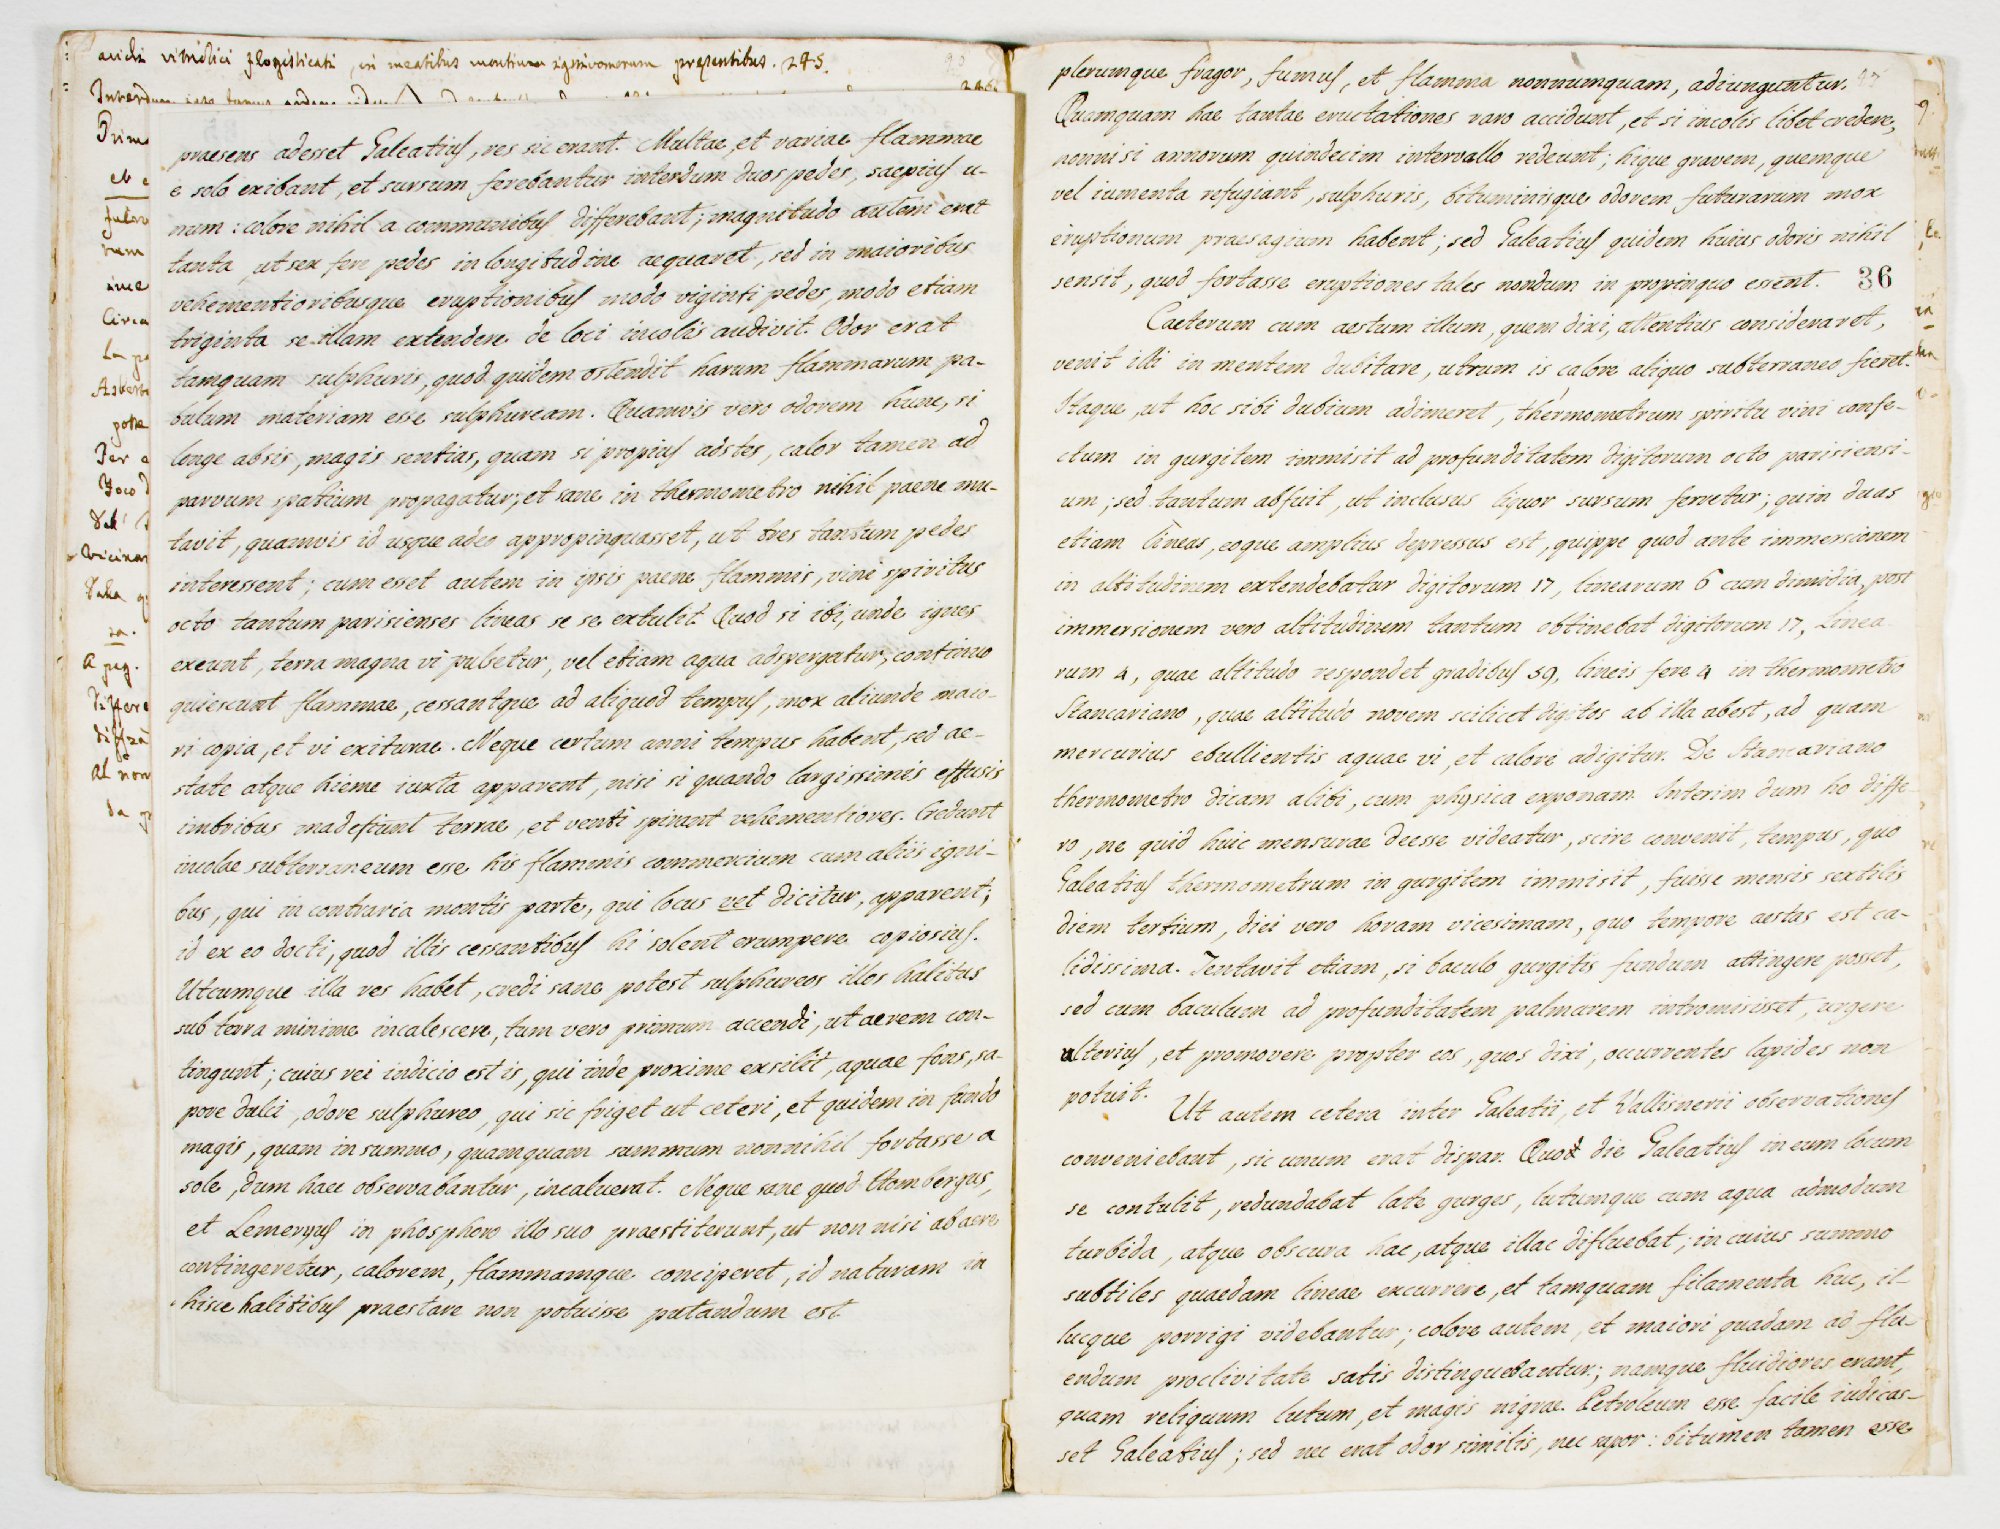 acidi vitriolici flogisticati, in meatibus montium ignivomorum presentibus. 245.
246
Prim
et
fulv
tum
ime
Circa
La po
Asbest
potre
Per a
Yoco d
Dal'
vicinan
Dala
za.
A pag.
differe
diffra
Al non
da
praesens adesset Galeatius, res sic erant. Multae, et variae flammae
e solo exibant, et sursum ferebantur interdum duos pedes, saepius u-
num: colore nihil a communibus differebant; magnitudo autem erat
tanta, ut sex fere pedes in longitudine aequaret, sed in maioribus
vehementioribusque eruptionibus modo viginti pedes, modo etiam
triginta se illam extendere de loci incolis audivit. Odor erat
tamquam sulphuris, quod quidem ostendit harum flammarum pa-
bulum materiam esse sulphuream. Quamvis vero odorem hunc, si
longe absis, magis sentias, quam si propius adstes, calor tamen ad
parvum spatium propagatur; et sane in thermometro nihil paene mu-
tavit, quamvis id usque adeo appropinquasset, ut tres tantum pedes
interessent; cum esset autem in ipsis paene flammis, vini spiritus
octo tantum parisienses lineas se se extulit. Quod si ibi, unde ignes
exeunt, terra magna vi pulsetur, vel etiam aqua adspergatur, continuo
quiescunt flammae, cessantque ad aliquod tempus, mox aliunde maio-
ri copia, et vi exiturae. Neque certum anni tempus habent, sed ae-
state atque hieme iuxta apparent, nisi si quando largissimis effusis
imbribus madefiunt terrae, et venti spirant vehementiores. Credunt
incolae subterraneum esse his flammis commercium cum aliis igni-
bus, qui in contraria montis parte, qui locus vet dicitur, apparent;
id ex eo docti, quod illis cessantibus hi solent erumpere copiosius.
Utcumque illa res habet, credi sane potest sulphureos illos halitus
sub terra minime incalescere, tum vero primum accendi, ut aerem con-
tingunt; cuius rei indicio est is, qui inde proxime exsilit, aquae fons, sa-
pore dulci, odore sulphureo, qui sic friget ut ceteri, et quidem in fundo
magis, quam in summo, quamquam summum nonnihil fortasse a
sole, dum haec observabantur, incaluerat. Neque sane quod Hombergus,
et Lemerius in phosphoro illo suo praestiterunt, ut non nisi ab aere
contingeretur, calorem, flammamque conciperet, id naturam in
hisce halitibus praestare non potuisse putandum est.
plerumque fragor, fumus, et flamma nonnumquam, adiunguntur.
Quamquam hae tantae eructationes raro accidunt, et si incolis libet credere,
nonnisi annorum quindecim intervallo redeunt; hique gravem, quemque
vel iumenta refugiant, sulphuris, bituminisque odorem futurarum mox
eruptionum praesagium habent; sed Galeatius quidem huius odoris nihil
sensit, quod fortasse eruptiones tales nondum in propinquo essent. 36
Caeterum cum aestum illum, quem dixi, attentius consideraret,
venit illi in mentem dubitare, utrum is calore aliquo subterraneo fieret.
Itaque, ut hoc sibi dubium adimeret, thermometrum spiritu vini confe-
ctum in gurgitem immisit ad profunditatem digitorum octo parisiensi-
um; sed tantum abfuit, ut inclusus liquor sursum ferretur; quin duas
etiam lineas, eoque amplius depressus est, quippe quod ante immersionem
in altitudinem extendebatur digitorum 17, linearum 6 cum dimidia, post
immersionem vero altitudinem tantum obtinebat digitorum 17, linea-
rum 4, quae altitudo respondet gradibus 59, lineis fere 4 in thermometro
Stancariano, quae altitudo novem scilicet digitos ab illa abest, ad quam
mercurius ebullientis aquae vi, et calore adigitur. De Stancariano
thermometro dicam alibi, cum physica exponam. Interim dum ho diffe-
ro, ne quid huic mensurae deesse videatur, scire convenit, tempus, quo
Galeatius thermometrum in gurgitem immisit, fuisse mensis sextilis
diem tertium, diei vero horam vicesimam, quo tempore aestas est ca-
lidissima. Tentavit etiam, si baculo gurgitis fundum attingere posset,
sed cum baculum ad profunditatem palmarem intromisisset, urgere
ulterius, et promovere propter eos, quos dixi, occurrentes lapides non
potuit.
Ut autem cetera inter Galeatii, et Vallisnerii observationes
conveniebant, sic unum erat dispar. Quod die Galeatius in eum locum
se contulit, redundabat late gurges, lutumque cum aqua admodum
turbida, atque obscura hac, atque illac difluebat; in cuius summo
subtiles quaedam lineae excurrere, et tamquam filamenta huc, il-
lucque porrigi videbantur; colore autem, et maiori quadam ad flu-
endum proclivitate satis distinguebantur; namque fluidiores erant,
quam reliquum lutum, et magis nigrae. Petroleum esse facile iudicas-
set Galeatius; sed nec erat odor similis, nec sapor: bitumen tamen esse